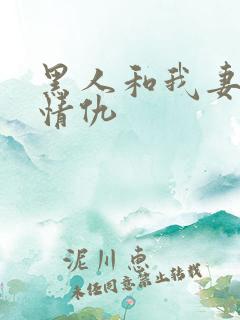 黑人和我妻
情仇
泥川惠
未经同意禁止转载